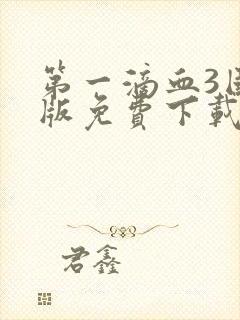 第一滴血3国
版免费下载
君鑫